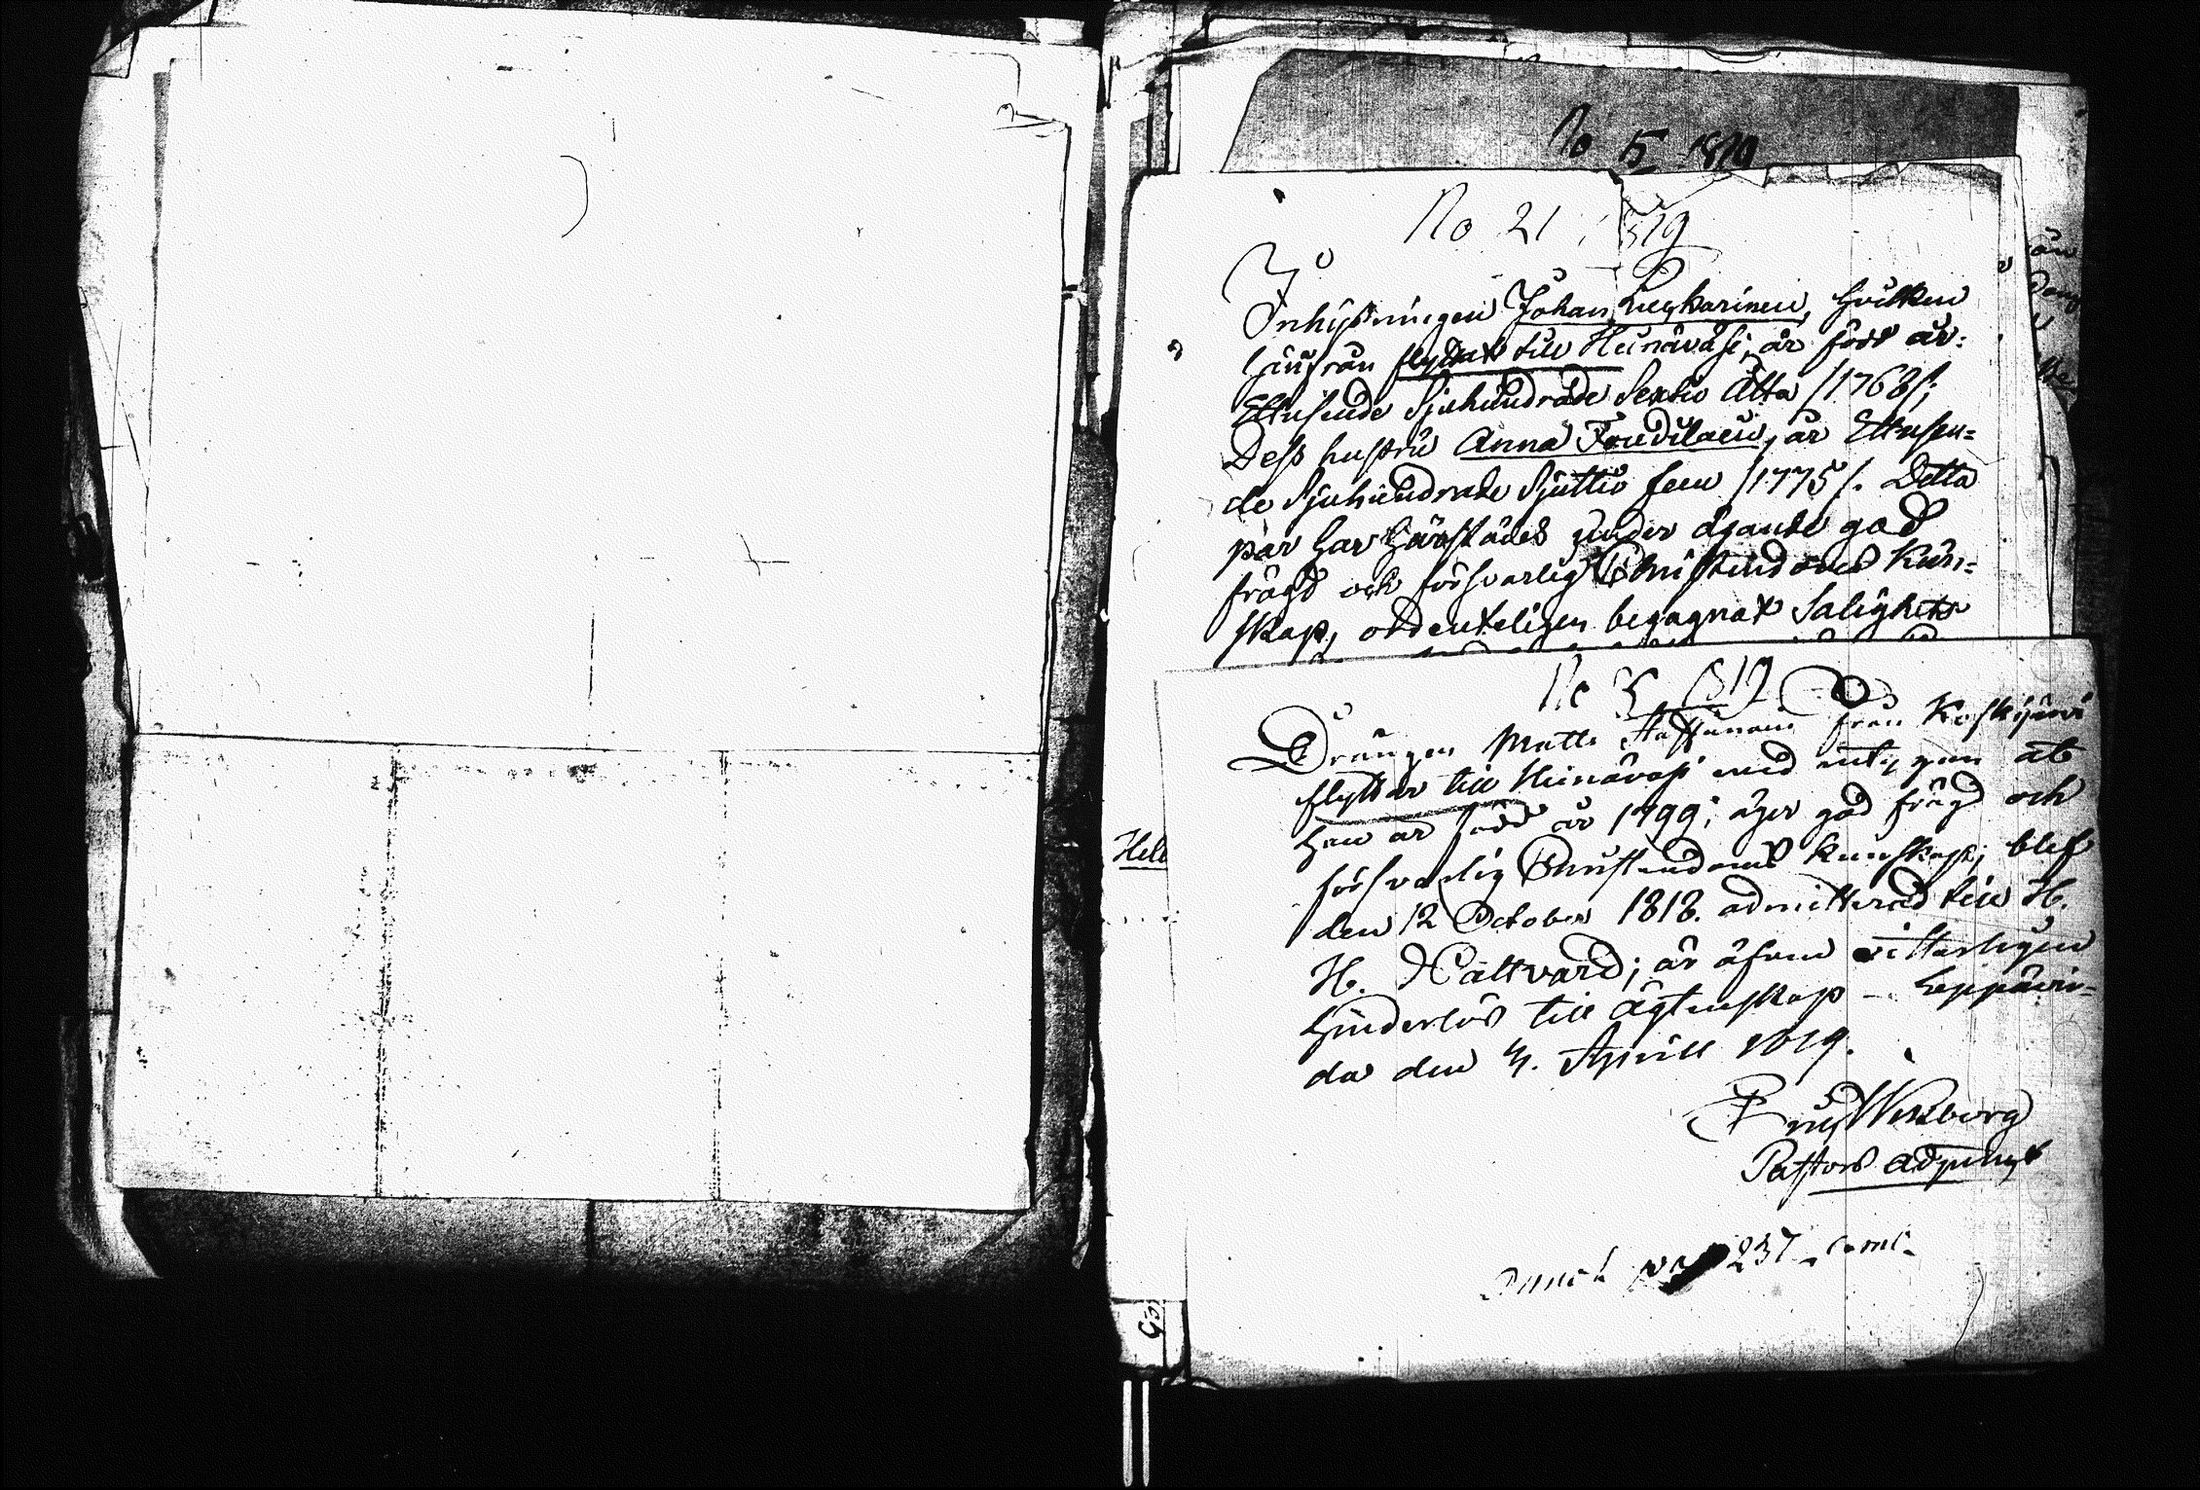 No 5 1819
No 21 1819
Inhysningen Johan hvilken
härifrån flyttat till Heinäväsi, är född år
Ettusende Sjuhundrade Sextio Åtta /1768/;
Dess hustru Anna år Ettusen=
de Sjuhundrade Sjuttio fem /1775/. Detta
par har härstädes under ägande god
frägd och försvarlig Christendoms kun=
skap, ordenteligen begagnat Salighets
No 5 1819
Drängen Matts från
flyttar till Heinäväsi med intyg om at
han är född år 1799; äger god frägd och
försvarlig Christendoms kunskap; blef
den 12 October 1818. admitterad till H.
H. Nattvard; är äfven vitterligen
hinderlös till ägtenskap – Leppävir=
da den 4. April 1819.
Pastors adjunct
237
Hell